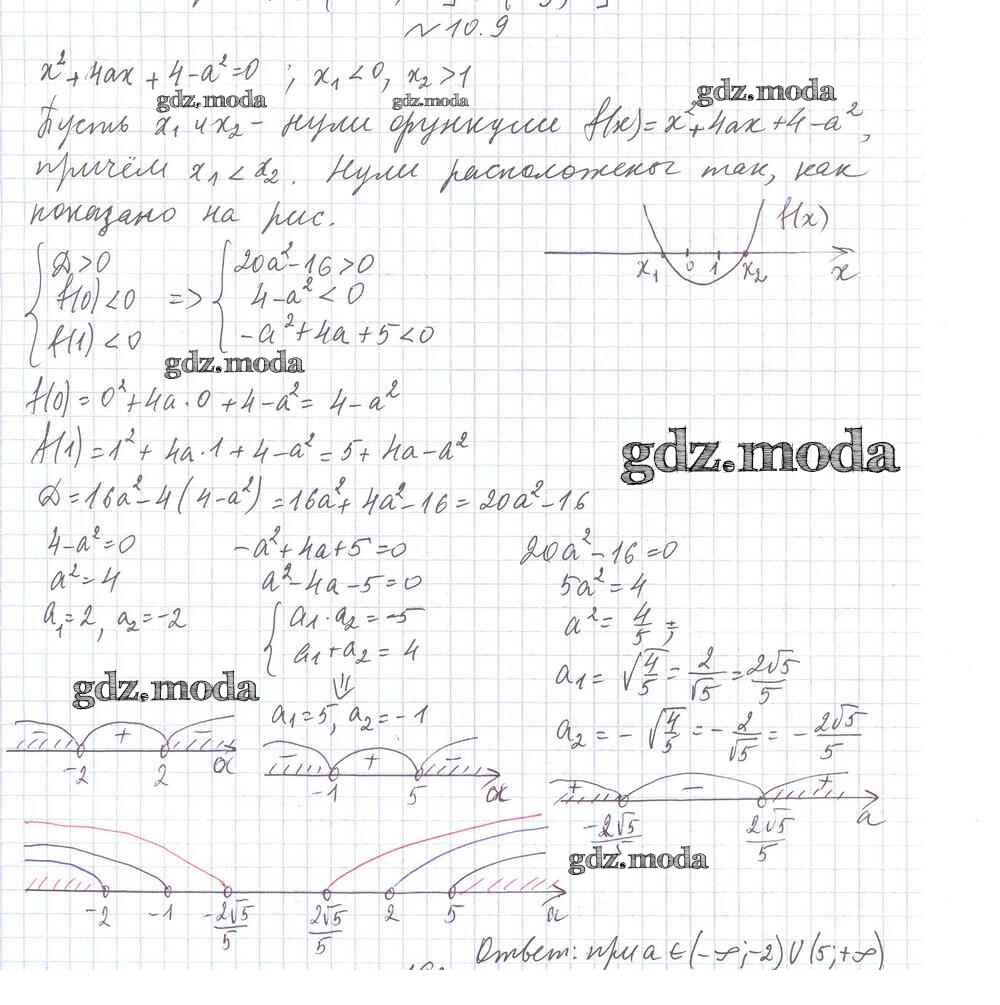 №10.9
x²+4ax+4-a²=0 ; x₁<0, x₂>1
gdz.moda gdz.moda gdz.moda
Пусть x₁ и x₂ - нули функции f(x)=x²+4ax+4-a²,
причём x₁<x₂. Нули расположены так, как
показано на рис.
f(x)
x₁ 0 1 x₂ x
{ D>0 { 20a²-16>0
f(0)<0 => 4-a²<0
f(1)<0 -a²+4a+5<0
gdz.moda
f(0)=0²+4a·0+4-a²=4-a²
f(1)=1²+4a·1+4-a²=5+4a-a²
gdz.moda
D=16a²-4(4-a²)=16a²+4a²-16=20a²-16
4-a²=0 -a²+4a+5=0 20a²-16=0
a²=4 a²-4a-5=0 5a²=4
a₁=2, a₂=-2 { a₁·a₂=-5 a²=4/5;
a₁+a₂=4
a₁=√(4/5)=2/√5=2√5/5
gdz.moda
⇓
a₁=5, a₂=-1
a₂=-√(4/5)=-2/√5=-2√5/5
- + -
-2 2 a
- + -
-1 5 a
+ - +
-2√5/5 2√5/5 a
gdz.moda
-2 -1 -2√5/5 2√5/5 2 5 a
Ответ: при a∈(-∞;-2)∪(5;+∞)